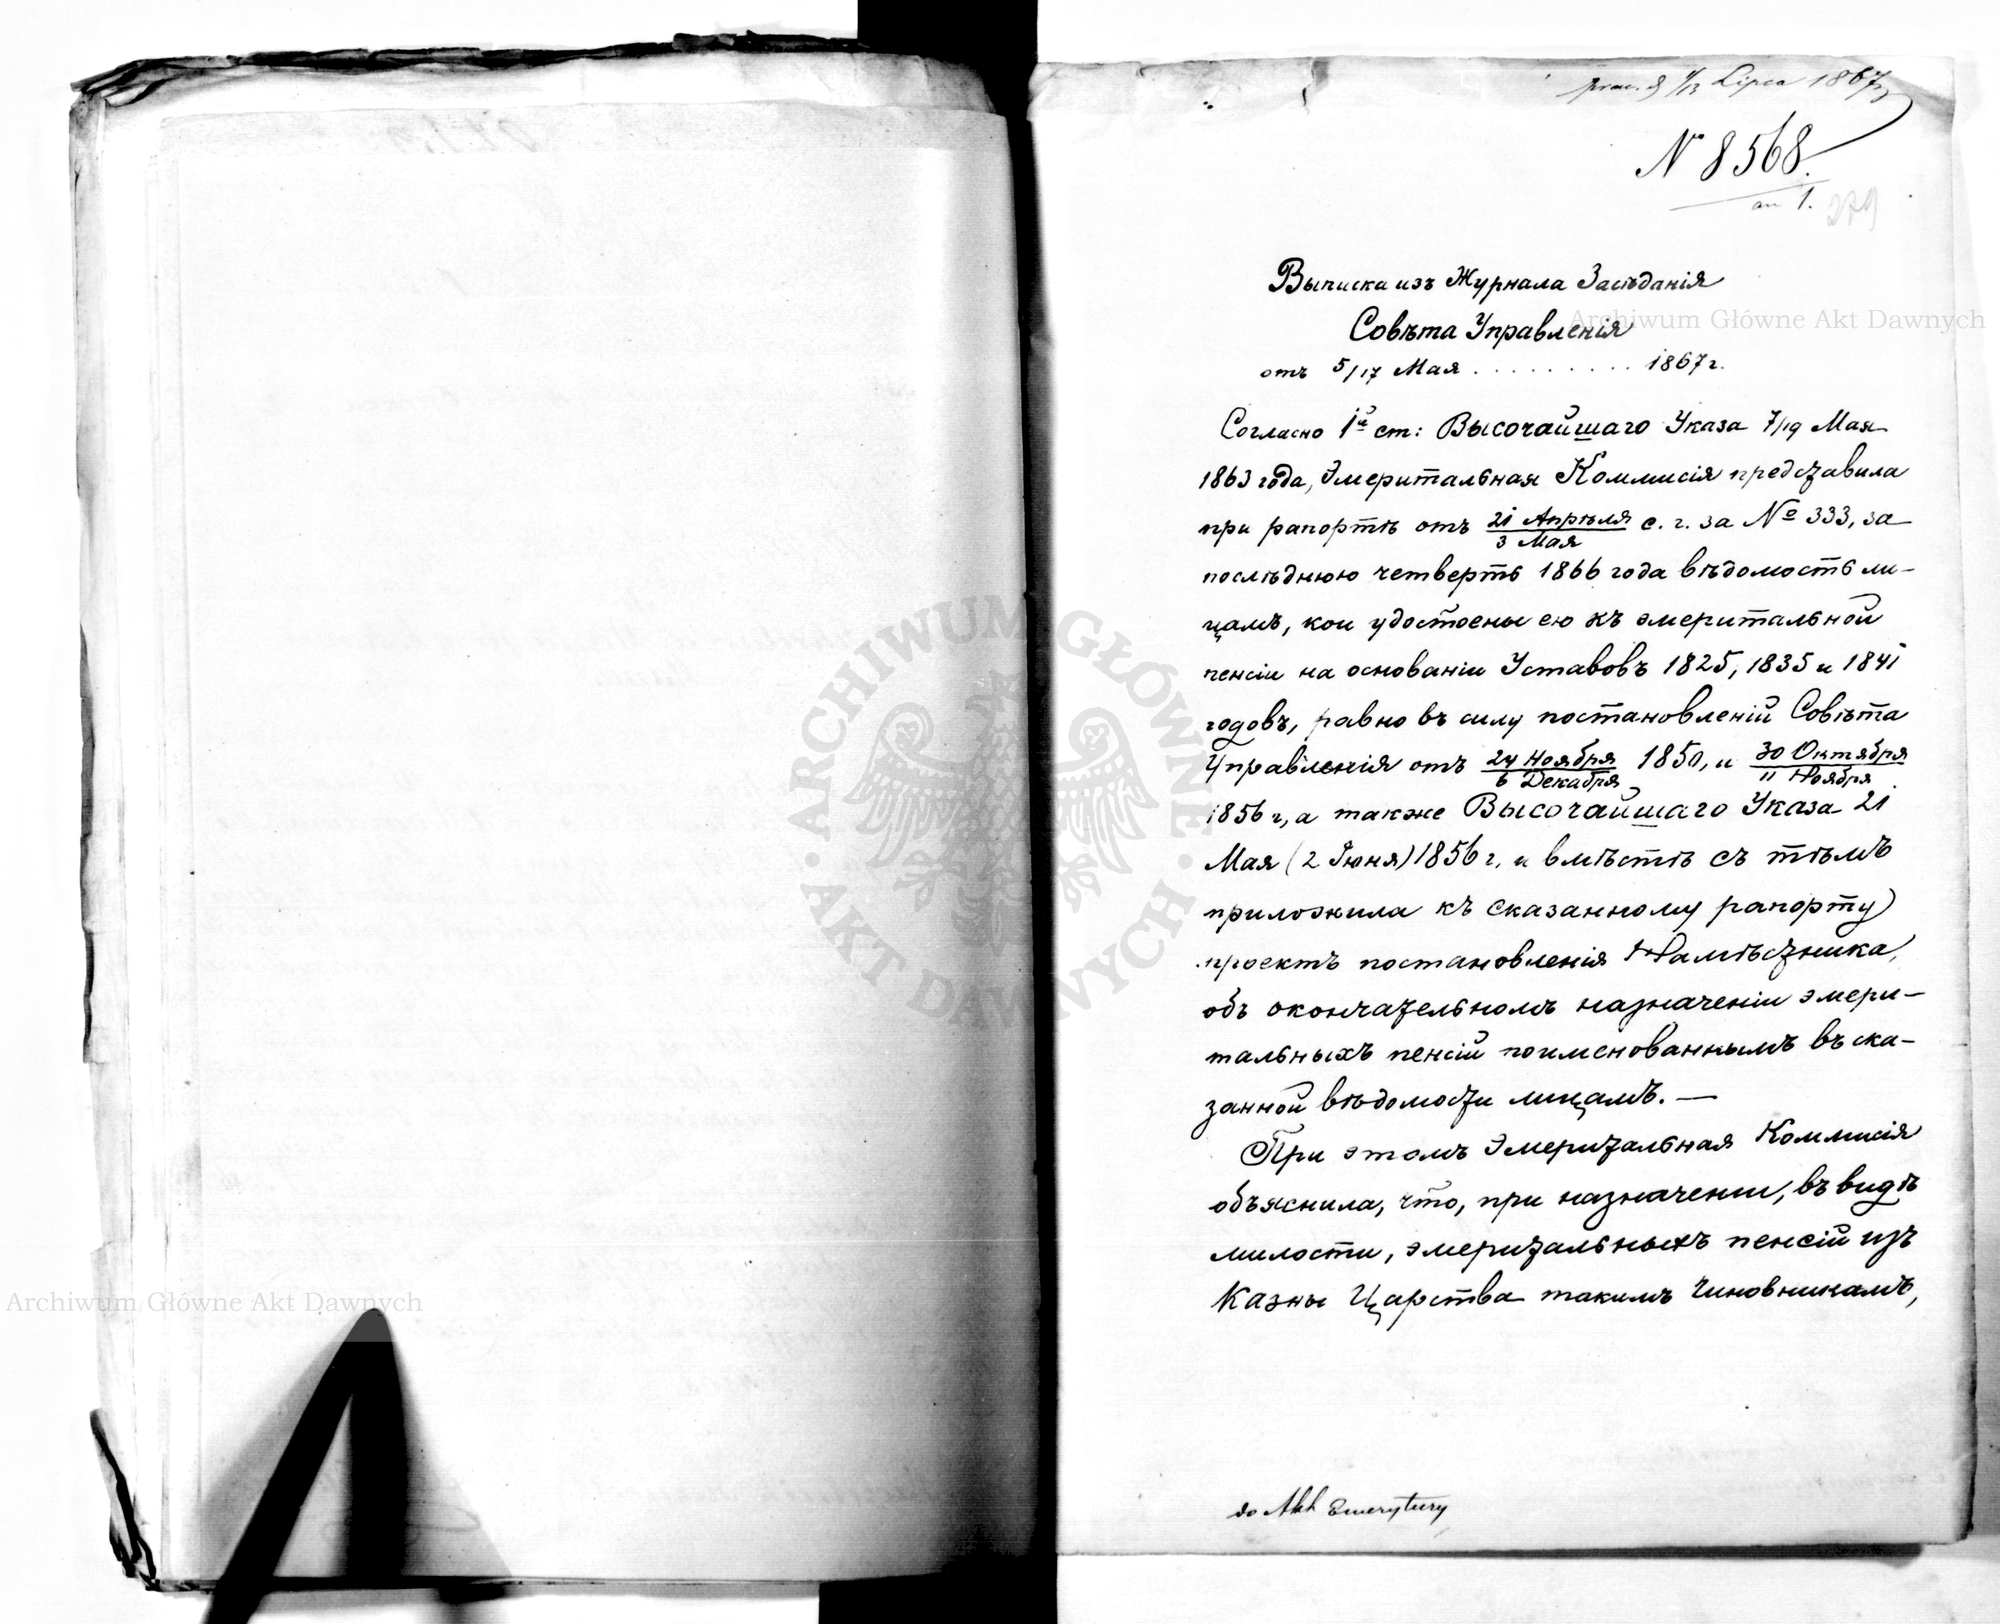 1/13 Lipca 1867
N 8568.
an 1.
279
Выписка изъ Журнала Засѣданія
Совѣта Управленія
отъ 5/17 Мая . . . . . . . . . 1867 г.
Согласно 1й ст: Высочайшаго Указа 7/19 Мая
1863 года, Эмеритальная Коммисія представила
при рапортѣ отъ 21 Апрѣля/3 Мая с. г. за № 333, за
послѣднюю четверть 1866 года вѣдомость ли-
цамъ, кои удостоены ею къ эмеритальной
пенсіи на основаніи Уставовъ 1825, 1835 и 1841
годовъ, равно въ силу постановленій Совѣта
Управленія отъ 24 Ноября/6 Декабря 1850, и 30 Октября/11 Ноября
1856 г, а также Высочайшаго Указа 21
Мая (2 Іюня) 1856 г. и вмѣстѣ съ тѣмъ
приложила къ сказанному рапорту
проектъ постановленія Намѣстника,
объ окончательномъ назначеніи эмери-
тальныхъ пенсій поименованнымъ въ ска-
занной вѣдомости лицамъ. —
При этомъ Эмеритальная Коммисія
объяснила, что, при назначеніи, въ видѣ
милости, эмеритальныхъ пенсій изъ
Казны Царства такимъ Чиновникамъ,
do Akt Emerytury
Archiwum Główne Akt Dawnych
Archiwum Główne Akt Dawnych
ARCHIWUM GŁÓWNE · AKT DAWNYCH ·